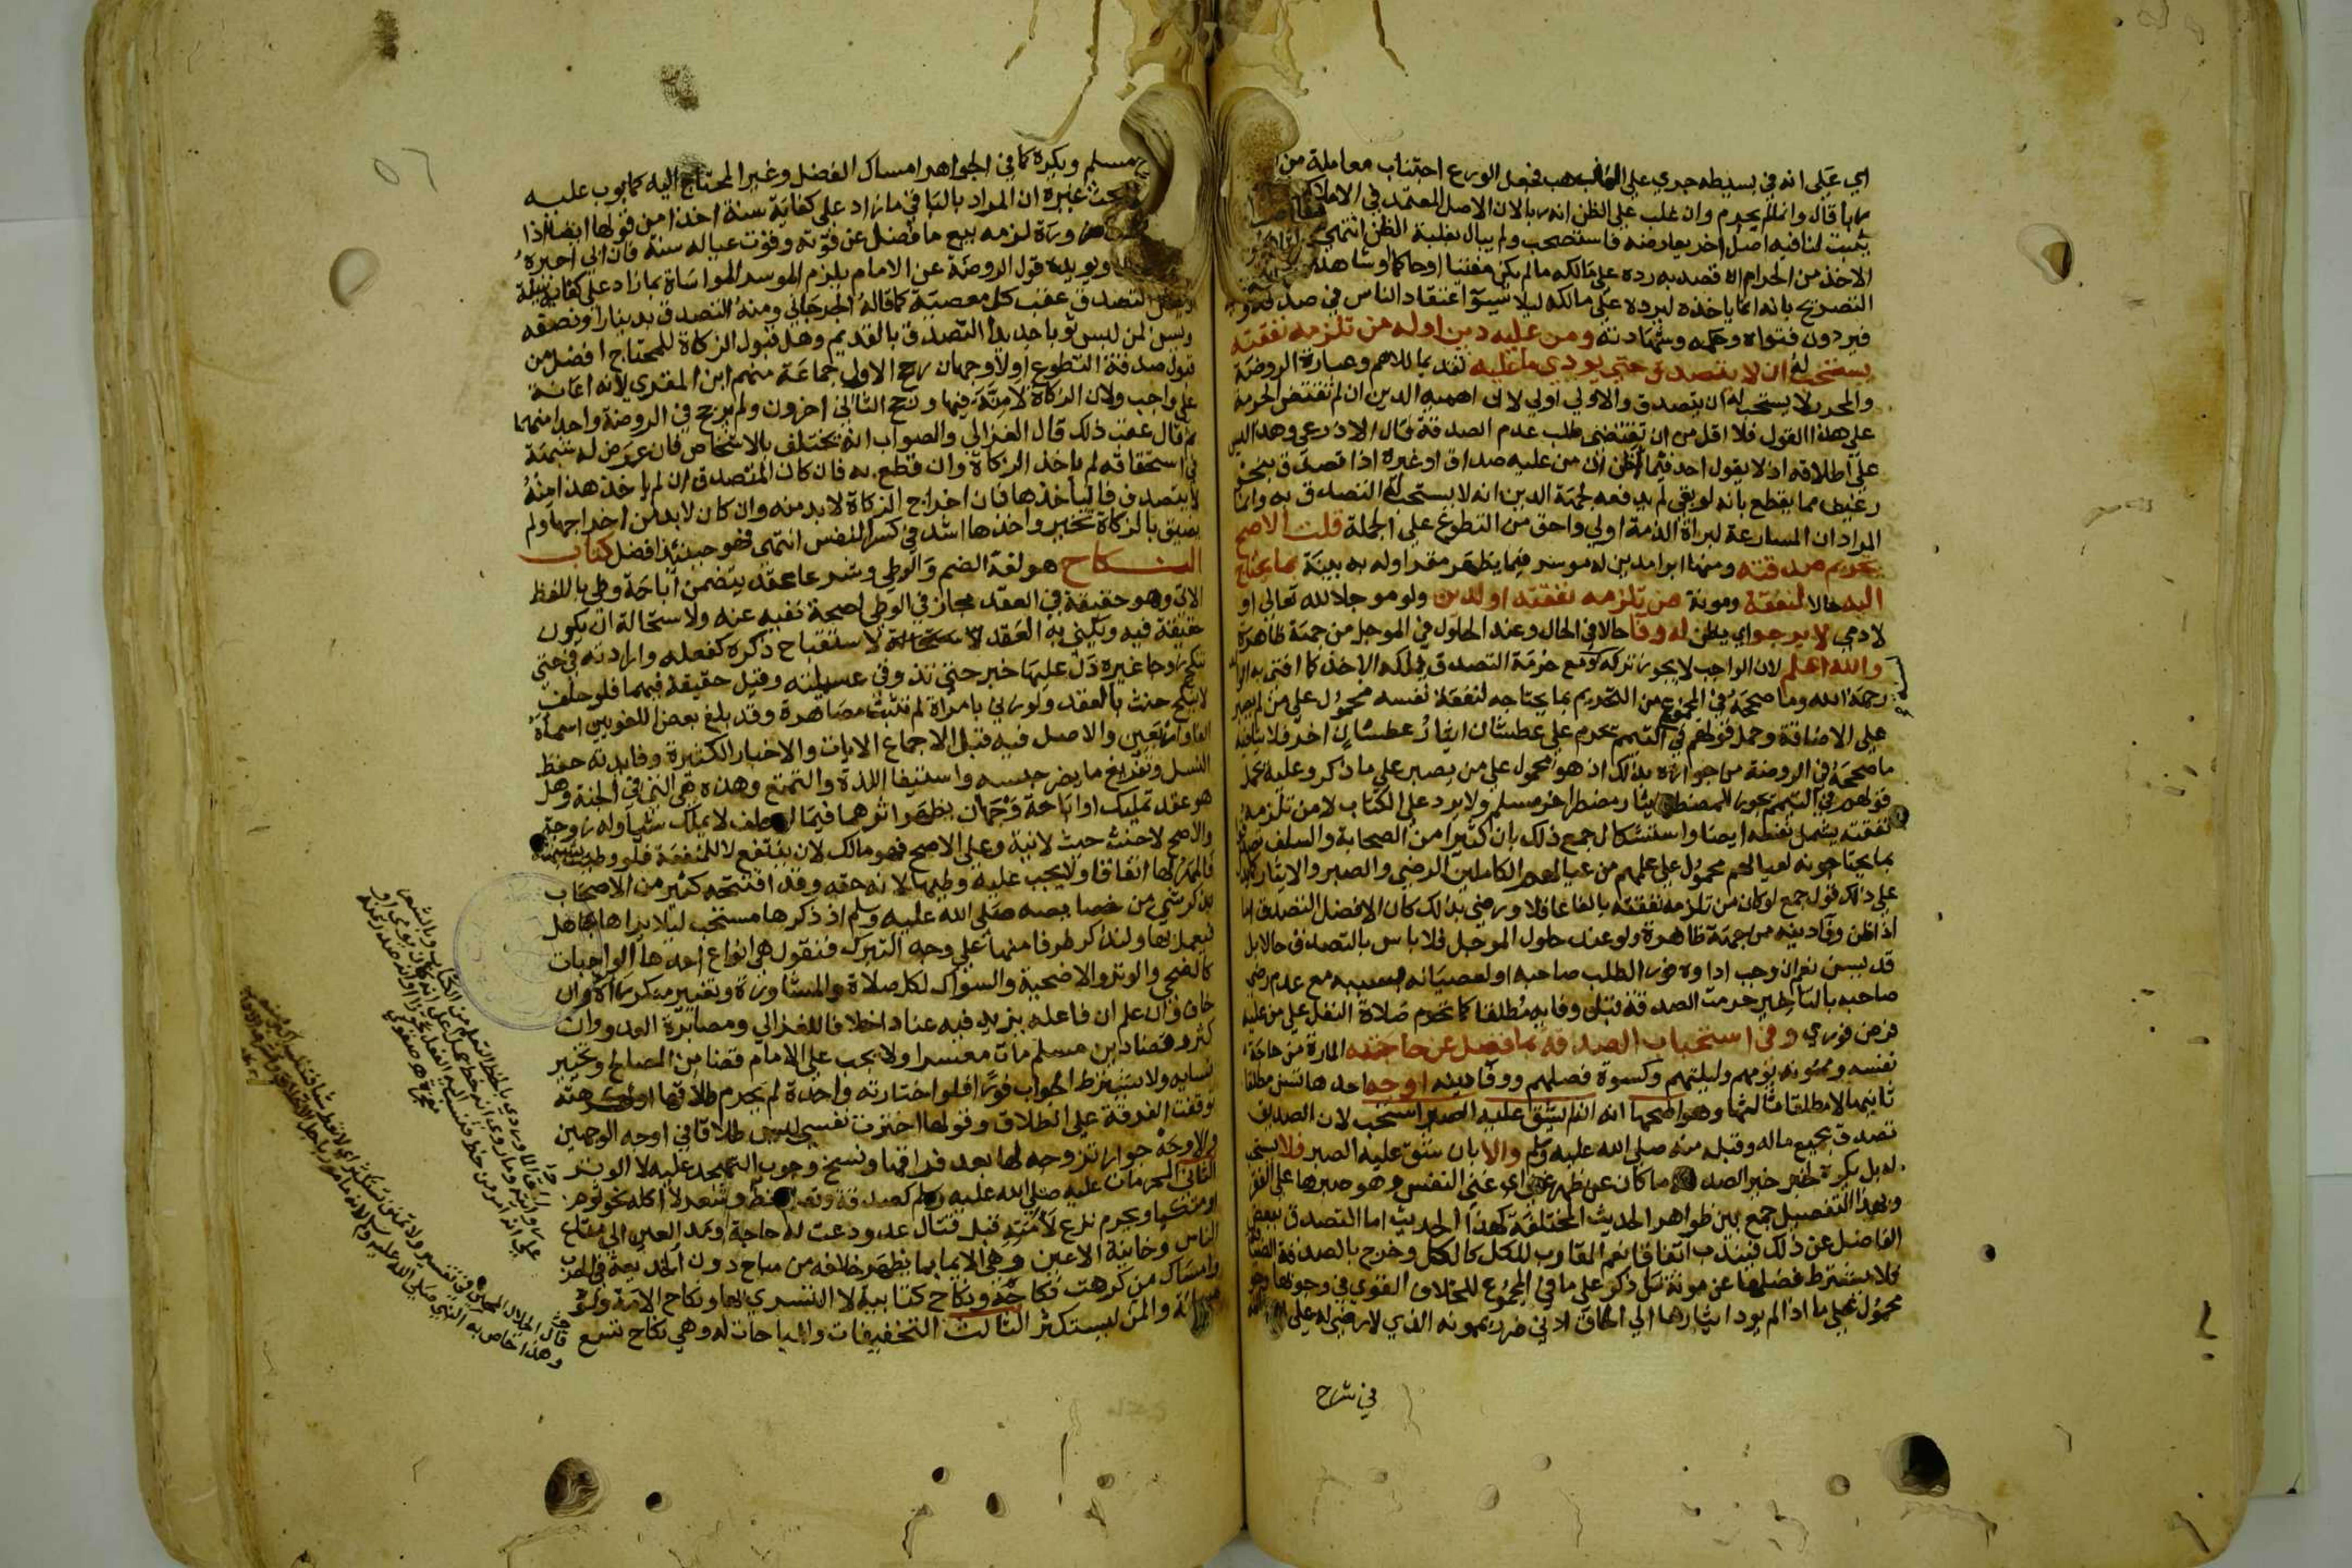 اي علي انه في بسيطه جري علي المذهب فجعل الورع اجتناب معاملة من
ربا قال وانما لم يحرم وان غلب علي الظن انه ربا لان الاصل المعتمد في الاملاك
يثبت لنا فيه اصل اخر يعارضه فاستصحب ولم يبال بغلبة الظن انتهي
الاخذ من الحرام اه قصد به رده علي مالكه ما لم يكن مفتيا او حاكما او شاهدا
التصريح بانه انما ياخذه ليرده علي مالكه ليلا يسوّ اعتقاد الناس في صدقه و
فيردون فتواه وحكمه وشهادته ومن عليه دين او له من تلزمه نفقته
يستحب له ان لا يتصدق حتي يودي ما عليه تقديما للاهم وعبارة الروضة
والمحرر لا يستحب له ان يتصدق والاولي اولي لان اهمية الدين ان لم تقتض الحرمة
علي هذا القول فلا اقل من ان تقتضي طلب عدم الصدقة قال الاذرعي وهذا ليس
علي اطلاقه اذ لا يقول احد فيما اظن ان من عليه صداق او غيره اذا تصدق بنحو
رغيف مما يقطع بانه لو بقي لم يدفعه لجهة الدين انه لا يستحب له التصدق به وانما
المراد ان المسارعة لبراة الذمة اولي واحق من التطوع علي الجملة قلت الاصح
تحريم صدقته ومنها ابرا مدين له موسر فيما يظهر مقر او له به بينة بما يحتاج
اليه حالا لنفقة ومونة من تلزمه نفقته او لدين ولو موجلا لله تعالي او
لادمي لا يرجو اي يظن له وفا حالا في الحال وعند الحلول في الموجل من جهة ظاهرة
والله اعلم لان الواجب لا يجوز تركه ومع حرمة التصدق يملكه الاخذ كما افتي به
رحمه الله وما صححه في المجموع من التحريم بما يحتاجه لنفقة نفسه محمول علي من لم يصبر
علي الاضاقة وحمل قولهم في التيمم يحرم علي عطشان ايثار عطشان اخر فلا ينافيه
ما صححه في الروضة من جوازه بذلك اذ هو محمول علي من يصبر علي ما ذكر وعليه يحمل
قولهم في التيمم يجوز للمضطر ايثار مضطر اخر مسلم ولا يرد علي الكتاب لان من تلزمه
نفقته يشمل نفسه ايضا واستشكال جمع ذلك بان كثيرا من الصحابة والسلف
بما يحتاجونه لعيالهم محمول علي علمهم من عيالهم الكاملين الرضي والصبر والايثار
علي ذلك قول جمع لو كان من تلزمه نفقته بالغا عاقلا ورضي بذلك كان الافضل التصدق اما
اذا ظن وفا دينه من جهة ظاهرة ولو عند حلول الموجل فلا باس بالتصدق حالا بل
قد يسن نعم ان وجب اداوه فورا لطلب صاحبه او لعصيانه بسببه مع عدم رضي
صاحبه بالتاخير حرمت الصدقة قبل وفايه مطلقا كما تحرم صلاة النفل علي من عليه
فرض فوري وفي استحباب الصدقة بما فضل عن حاجته المارة من حاجة
نفسه وممونه يومهم وليلتهم وكسوة فصلهم ووفا دينه اوجه احدها تسن مطلقا
ثانيها لا مطلقا ثالثها وهو اصحها انه ان لم يشق عليه الصبر استحب لان الصديق
تصدق بجميع ماله وقبله منه صلي الله عليه وسلم والا بان شق عليه الصبر فلا يستحب
له بل يكره لخبر خير الصدقة ما كان عن ظهر غني اي غني النفس وهو صبرها علي الفقر
وبهذا التفصيل جمع بين ظواهر الحديث المختلفة كهذا الحديث اما التصدق ببعض
الفاضل عن ذلك فيندب اتفاقا نعم المقارب للكل كالكل وخرج بالصدقة الضيافة
فلا يشترط فضلها عن مونة من ذكر علي ما في المجموع للخلاف القوي في وجوبها وهو
محمول علي ما اذا لم يود ايثارها الي الحاق ادني ضرر بممونه الذي لا رضي له علي
في شرح
مسلم ويكره كما في الجواهر امساك الفضل وغير المحتاج اليه كما بوب عليه
بحث غيره ان المراد بالباقي ما زاد علي كفاية سنة اخذا من قولها ايضا اذا
ضرورة لزمه بيع ما فضل عن قوته وقوت عياله سنة فان ابي اجبره
ويويده قول الروضة عن الامام يلزم الموسر المواساة بما زاد علي كفاية سنة
التصدق عقب كل معصية كما قاله الجرجاني ومنه التصدق بدينار او نصفه
ويسن لمن لبس ثوبا جديدا التصدق بالقديم وهل قبول الزكاة للمحتاج افضل من
قبول صدقة التطوع او لا وجهان رجح الاولي جماعة منهم ابن المقري لانه اعانة
علي واجب ولان الزكاة لا منة فيها ورجح الثاني اخرون ولم يرجح في الروضة واحدا منهما
ثم قال عقب ذلك قال الغزالي والصواب انه يختلف بالاشخاص فان عرض له شبهة
في استحقاقه لم ياخذ الزكاة وان قطع به فان كان المتصدق ان لم ياخذ هذا منه
لا يتصدق فالياخذها فان اخراج الزكاة لا بد منه وان كان لا بد من اخراجها ولم
يضيق بالزكاة تخير واخذها اشد في كسر النفس انتهي فهو حينئذ افضل كتاب
النكاح هو لغة الضم والوطي وشرعا عقد يتضمن اباحة وطي باللفظ
الاتي وهو حقيقة في العقد مجاز في الوطي لصحة نفيه عنه ولاستحالة ان يكون
حقيقة فيه ويكني به العقد لاستقباح ذكره كفعله وارادته في حتي
تنكح زوجا غيره دل عليها خبر حتي تذوقي عسيلته وقيل حقيقة فيهما فلو حلف
لا ينكح حنث بالعقد ولو زني بامراة لم تثبت مصاهرة وقد بلغ بعض اللغويين اسماه
الفا واربعين والاصل فيه قبل الاجماع الايات والاخبار الكثيرة وفايدته حفظ
النسل وتفريغ ما يضر حبسه واستيفا اللذة والتمتع وهذه هي التي في الجنة وهل
هو عقد تمليك او اباحة وجهان يظهر اثرهما فيما لو حلف لا يملك شيا وله زوجة
والاصح لا حنث حيث لا نية وعلي الاصح فهو مالك لان ينتفع لا للمنفعة فلو وطيت بشبهة
فالمهر لها اتفاقا ولا يجب عليه وطيها لانه حقه وقد افتتحه كثير من الاصحاب
بذكر شي من خصايصه صلي الله عليه وسلم اذ ذكرها مستحب ليلا يراها جاهل
فيعمل بها ولنذكر طرفا منها علي وجه التبرك فنقول هي انواع احدها الواجبات
كالضحي والوتر والاضحية والسواك لكل صلاة والمشاورة وتغيير منكر راه وان
خاف وان علم ان فاعله يزيد فيه عنادا خلافا للغزالي ومصابرة العدو وان
كثر وقضا دين مسلم مات معسرا ولا يجب علي الامام قضا من المصالح وتخيير
نسايه ولا يشترط الجواب فورا فلو اختارته واحدة لم يحرم طلاقها او كرهته
توقفت الفرقة علي الطلاق وقولها اخترت نفسي ليس طلاقا في اوجه الوجهين
والاوجه جواز تزوجه لها بعد فراقها ونسخ وجوب التهجد عليه لا الوتر
الثاني المحرمات عليه صلي الله عليه وسلم كصدقة وتعلم خط وشعر لا اكله نحو ثوم
او متكيا ويحرم نزع لامته قبل قتال عدو دعت له حاجة ومد العين الي متاع
الناس وخاينة الاعين وهي الايما بما يظهر خلافه من مباح دون الخديعة في الحرب
وامساك من كرهت نكاحه ونكاح كتابية لا التسري بها ونكاح الامة ولو
مسلمة والمن ليستكثر الثالث التخفيفات والمباحات له وهي نكاح تسع
قال الجلال المحلي في تفسير ولا تمنن تستكثر
وهذا خاص به النبي صلي الله عليه وسلم